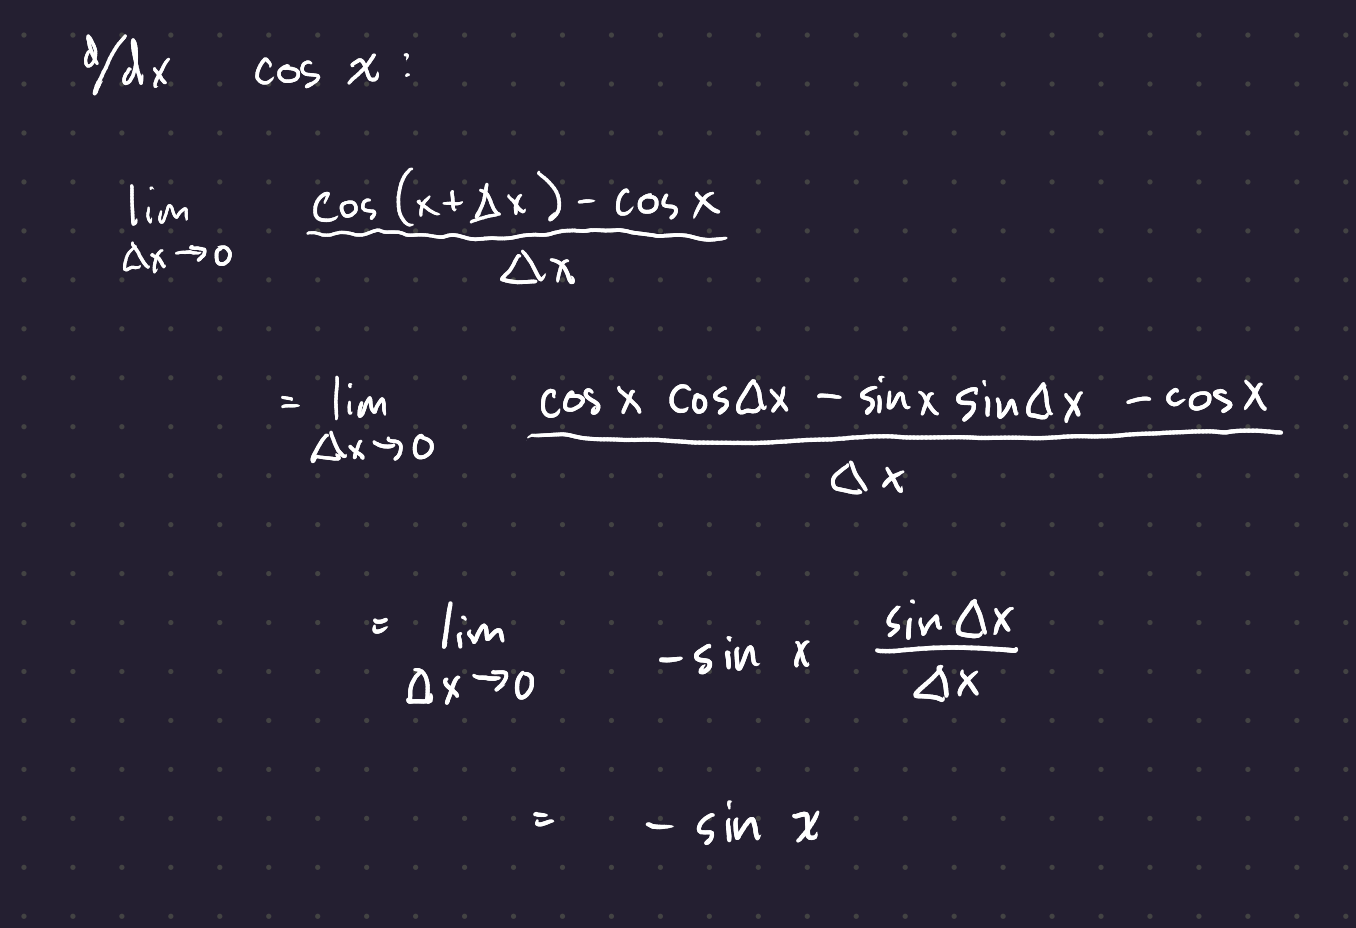 d/dx cos x :
lim Δx→0 (cos (x+Δx) - cos x) / Δx
= lim Δx→0 (cos x cos Δx - sin x sin Δx - cos x) / Δx
= lim Δx→0 - sin x (sin Δx / Δx)
= - sin x